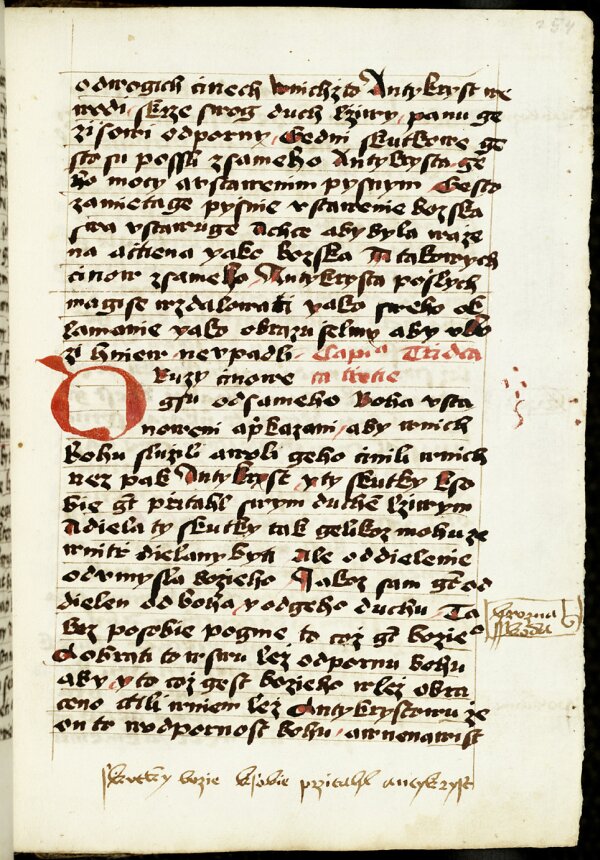 254
odwogich cinech w nichzto Antykryst we
wodi skrze swog duch lziwy panu ge
zisowi odporny Gedni skutkowe ge
sto su possli zsameho Antykrysta ge
ho mocy a vstawenim pysnym Gesto
zamietage pysnie vstawenie bozska
swa vstawuge A chce aby byla waze
na a cztiena yako bozska A takowych
cinow zsameho Antykrysta poslych
magi se wzdalowati yako sweho ok
lamanie yako obrazu selmy aby v bo
zi hniew nevpadli Capia Tridca
Ruzy cinowe ta tretie
gsu od sameho Boha vsta
noweni a prikazani aby w nich
Bohu sluzili a woli geho cinili w nich
nez pak Antykryst y ty skutky k so
bie gt pritahl swym duchem lziwym
A diela ty skutky tak gelikoz mohu ze
wnitr dielany byti Ale oddielenie
od vmysla bozieho Jakoz sam gt od
dielen od boha y od geho duchu Ta
koz posobie pogme to coz gt bozieo
obrati to w swu lez odpornu bohu
aby y to coz gest bozieho w lez obra
ceno ctili w niem lez Antykrystowu ze
on te w odpornost bohu a w nenawist
hrozna
skoda
skutky bozie k sobie pritahl antykryst